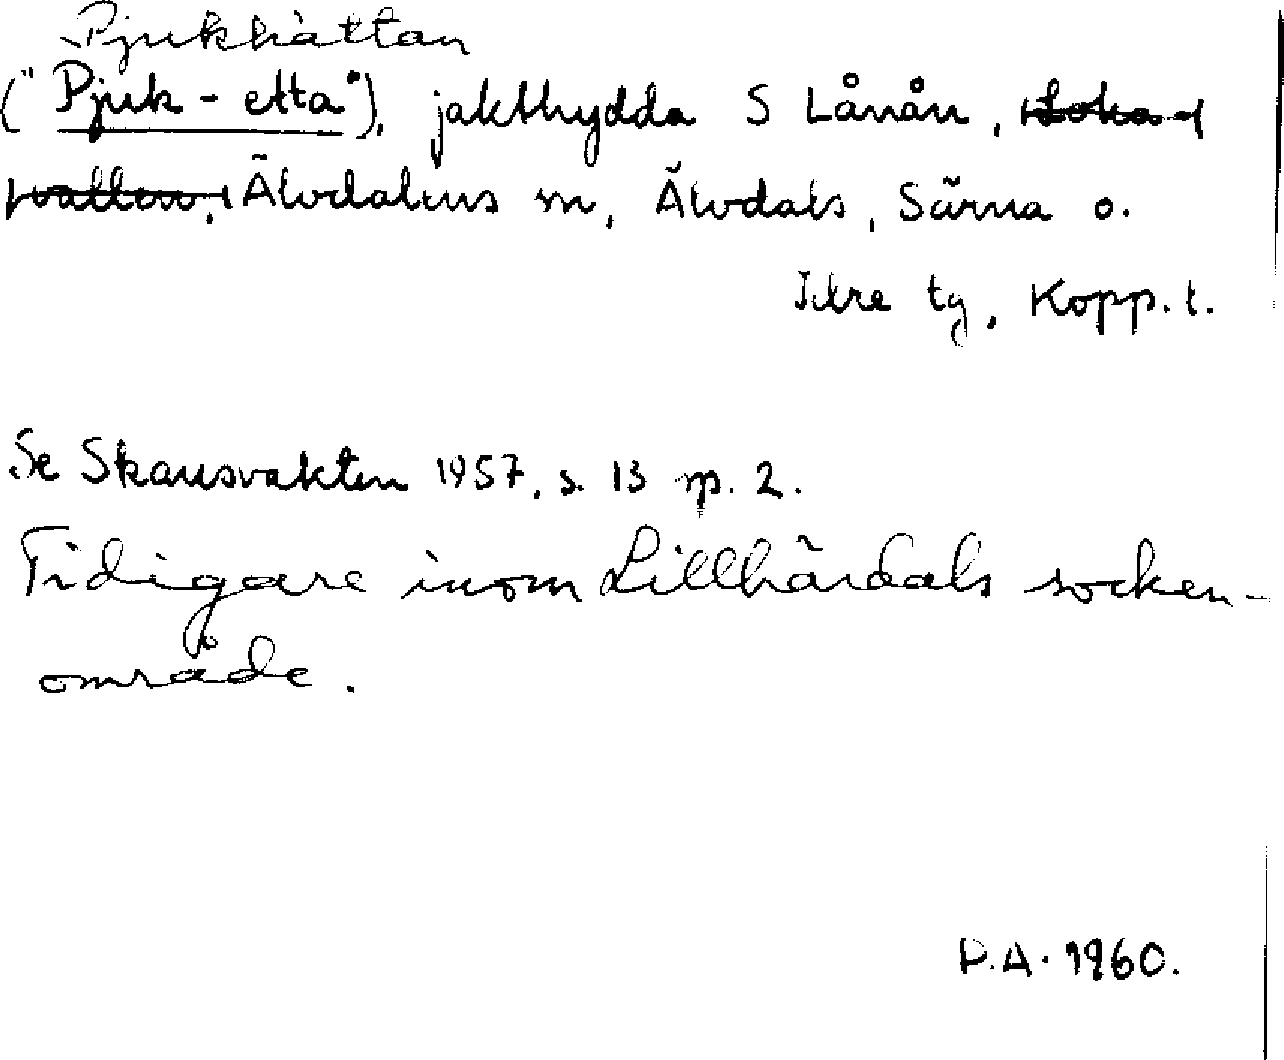 Pjukhättan
("Pjuk-etta"), jakthydda S Lånån, Loka-
vallen, Älvdalens sn, Älvdals, Särna o.
Idre tg, Kopp. l.
Se Skansvakten 1957, s. 13 sp. 2.
Tidigare inom Lillhärdals socken-
område.
P.A. 1960.